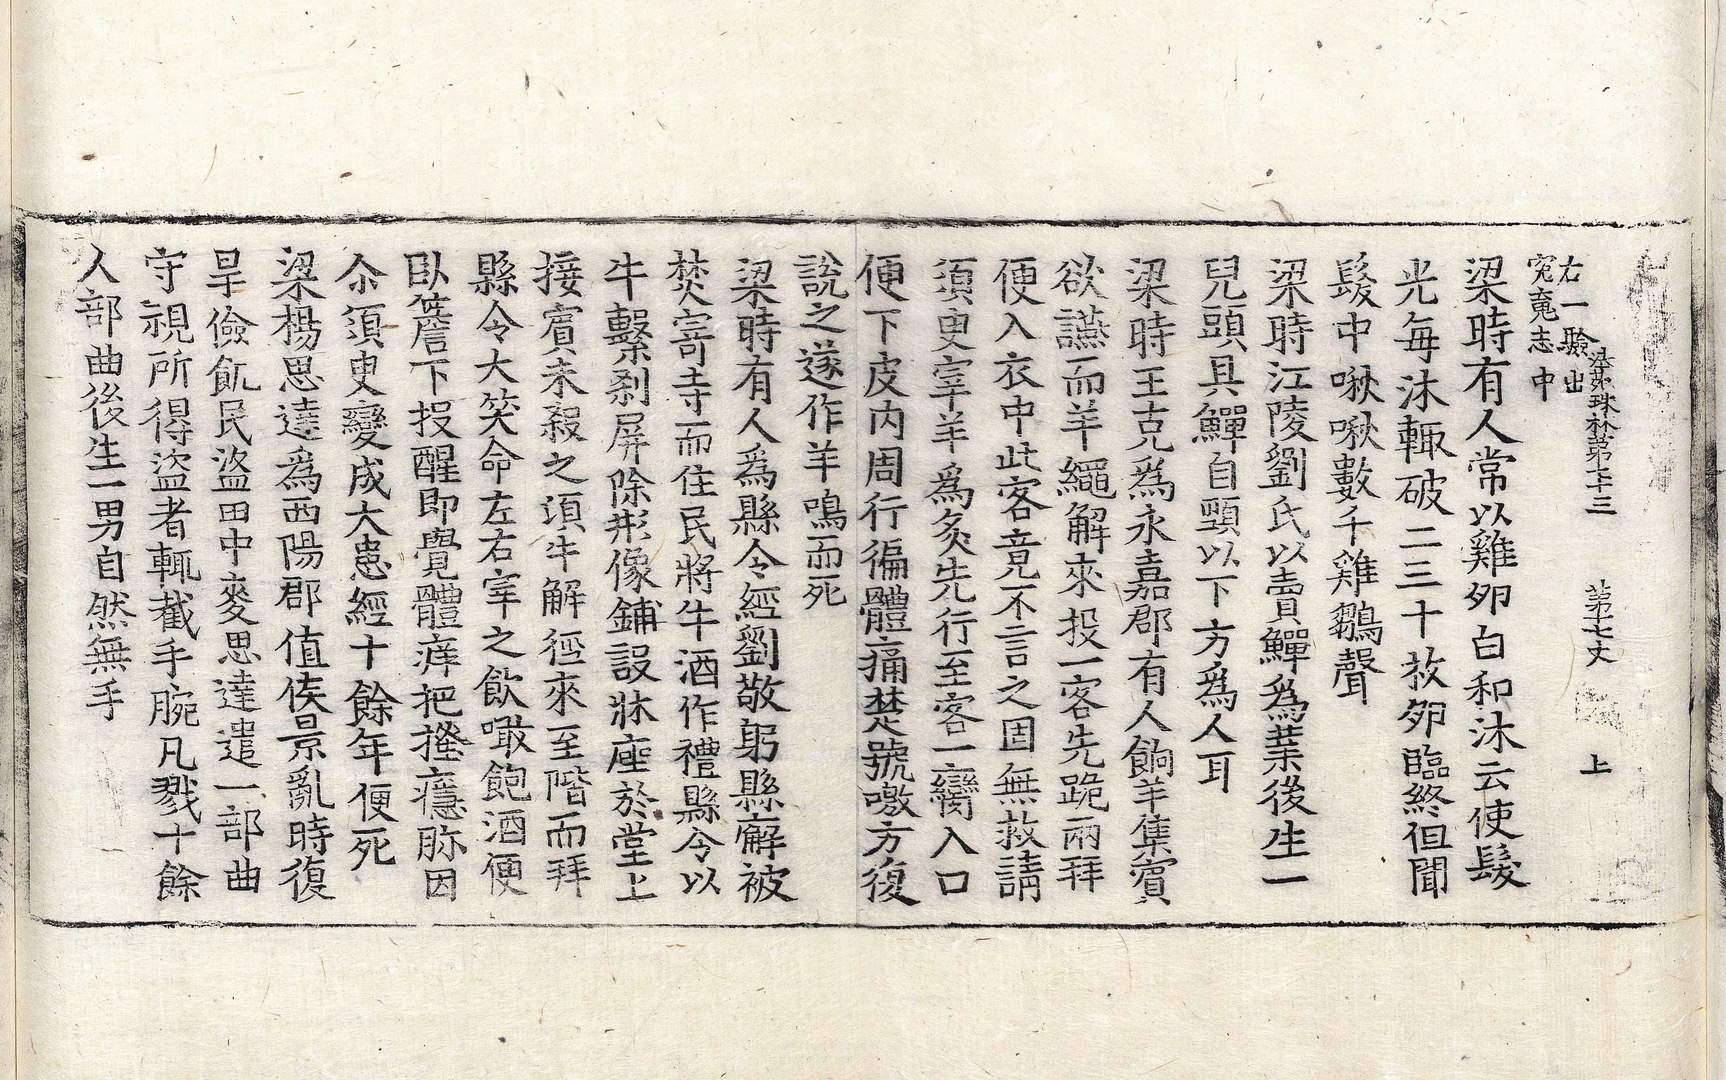 法苑珠林第七十三 第七丈 上
右一驗出
冤魂志中
梁時有人常以雞卵白和沐云使髮
光每沐輒破二三十枚卵臨終但聞
髮中啾啾數千雞鶵聲
梁時江陵劉氏以賣鱓為業後生一
兒頭具鱓自頸以下方為人耳
梁時王克為永嘉郡有人餉羊集賓
欲讌而羊繩解來投一客先跪兩拜
便入衣中此客竟不言之固無救請
須臾宰羊為炙先行至客一臠入口
便下皮內周行徧體痛楚號噭方復
說之遂作羊鳴而死
梁時有人為縣令經劉敬躬縣廨被
焚寄寺而住民將牛酒作禮縣令以
牛繫剎屏除形像鋪設牀座於堂上
接賓未殺之頃牛解徑來至階而拜
縣令大笑命左右宰之飲噉飽酒便
臥簷下投醒即覺體痒把搔癮胗因
尒須臾變成大患經十餘年便死
梁楊思達為西陽郡值侯景亂時復
旱儉飢民盜田中麥思達遣一部曲
守視所得盜者輒截手腕凡戮十餘
人部曲後生一男自然無手